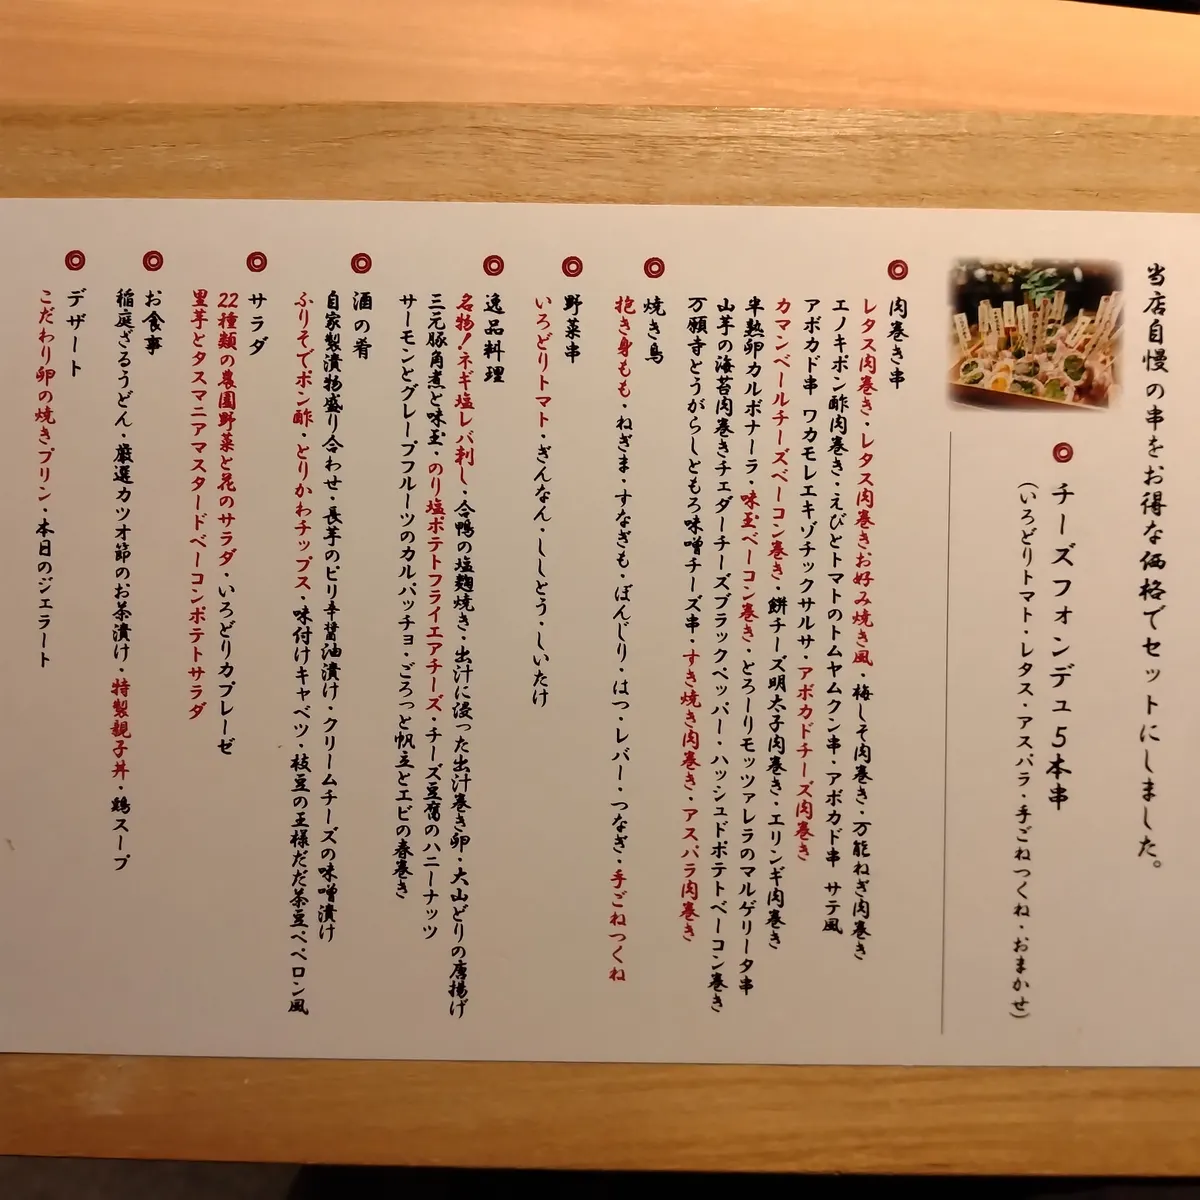 当店自慢の串をお得な価格でセットにしました。
◎チーズフォンデュ5本串
(いろどりトマト・レタス・アスパラ・手ごねつくね・おまかせ)
◎肉巻き串
レタス肉巻き・レタス肉巻きお好み焼き風・梅しそ肉巻き・万能ねぎ肉巻き
エノキポン酢肉巻き・えびとトマトのトムヤムクン串・アボカド串 サテ風
アボカド串 ワカモレエキゾチックサルサ・アボカドチーズ肉巻き
カマンベールチーズベーコン巻き・餅チーズ明太子肉巻き・エリンギ肉巻き
半熟卵カルボナーラ・味玉ベーコン巻き・とろーりモッツァレラのマルゲリータ串
山芋の海苔肉巻きチェダーチーズブラックペッパー・ハッシュドポテトベーコン巻き
万願寺とうがらしともろ味噌チーズ串・すき焼き肉巻き・アスパラ肉巻き
◎焼き鳥
抱き身もも・ねぎま・すなぎも・ぼんじり・はつ・レバー・つなぎ・手ごねつくね
◎野菜串
いろどりトマト・ぎんなん・ししとう・しいたけ
◎逸品料理
名物!ネギ塩レバ刺し・合鴨の塩麹焼き・出汁に浸った出汁巻き卵・大山どりの唐揚げ
三元豚角煮と味玉・のり塩ポテトフライエアチーズ・チーズ豆腐のハニーナッツ
サーモンとグレープフルーツのカルパッチョ・ごろっと帆立とエビの春巻き
◎酒の肴
自家製漬物盛り合わせ・長芋のピリ辛醤油漬け・クリームチーズの味噌漬け
ふりそでポン酢・とりかわチップス・味付けキャベツ・枝豆の王様だだ茶豆ペペロン風
◎サラダ
22種類の農園野菜と花のサラダ・いろどりカプレーゼ
里芋とタスマニアマスタードベーコンポテトサラダ
◎お食事
稲庭ざるうどん・厳選カツオ節のお茶漬け・特製親子丼・鶏スープ
◎デザート
こだわり卵の焼きプリン・本日のジェラート